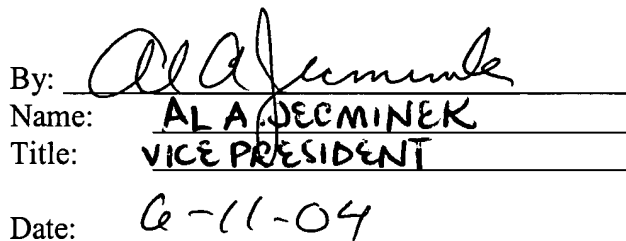 By: Al A Jecminek
Name: AL A. JECMINEK
Title: VICE PRESIDENT
Date: 6-11-04